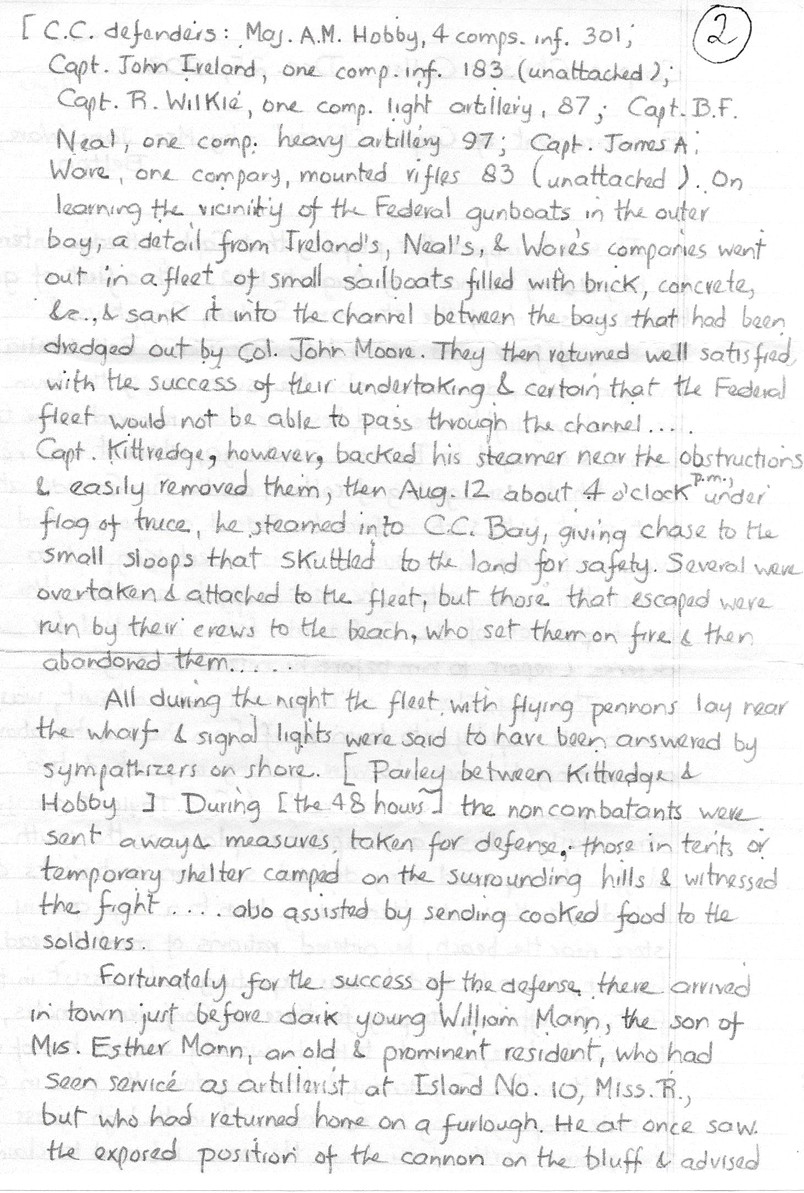 2
[ C.C. defenders: Maj. A.M. Hobby, 4 comps. inf. 301;
Capt. John Ireland, one comp. inf. 183 (unattached);
Capt. R. Wilkie, one comp. light artillery, 87; Capt. B.F.
Neal, one comp. heavy artillery 97; Capt. James A.
Ware, one company, mounted rifles 83 (unattached). On
learning the vicinity of the Federal gunboats in the outer
bay, a detail from Ireland's, Neal's, & Ware's companies went
out in a fleet of small sailboats filled with brick, concrete,
&c., & sank it into the channel between the bays that had been
dredged out by Col. John Moore. They then returned well satisfied
with the success of their undertaking & certain that the Federal
fleet would not be able to pass through the channel....
Capt. Kittredge, however, backed his steamer near the obstructions
& easily removed them, then Aug. 12 about 4 o'clock p.m., under
flag of truce, he steamed into C.C. Bay, giving chase to the
small sloops that skuttled to the land for safety. Several were
overtaken & attached to the fleet, but those that escaped were
run by their crews to the beach, who set them on fire & then
abandoned them.....
All during the night the fleet with flying pennons lay near
the wharf & signal lights were said to have been answered by
sympathizers on shore. [ Parley between Kittredge &
Hobby ] During [the 48 hours] the noncombatants were
sent away & measures taken for defense, those in tents or
temporary shelter camped on the surrounding hills & witnessed
the fight .... also assisted by sending cooked food to the
soldiers.
Fortunately for the success of the defense there arrived
in town just before dark young William Mann, the son of
Mrs. Esther Mann, an old & prominent resident, who had
seen service as artillerist at Island No. 10, Miss. R.,
but who had returned home on a furlough. He at once saw
the exposed position of the cannon on the bluff & advised